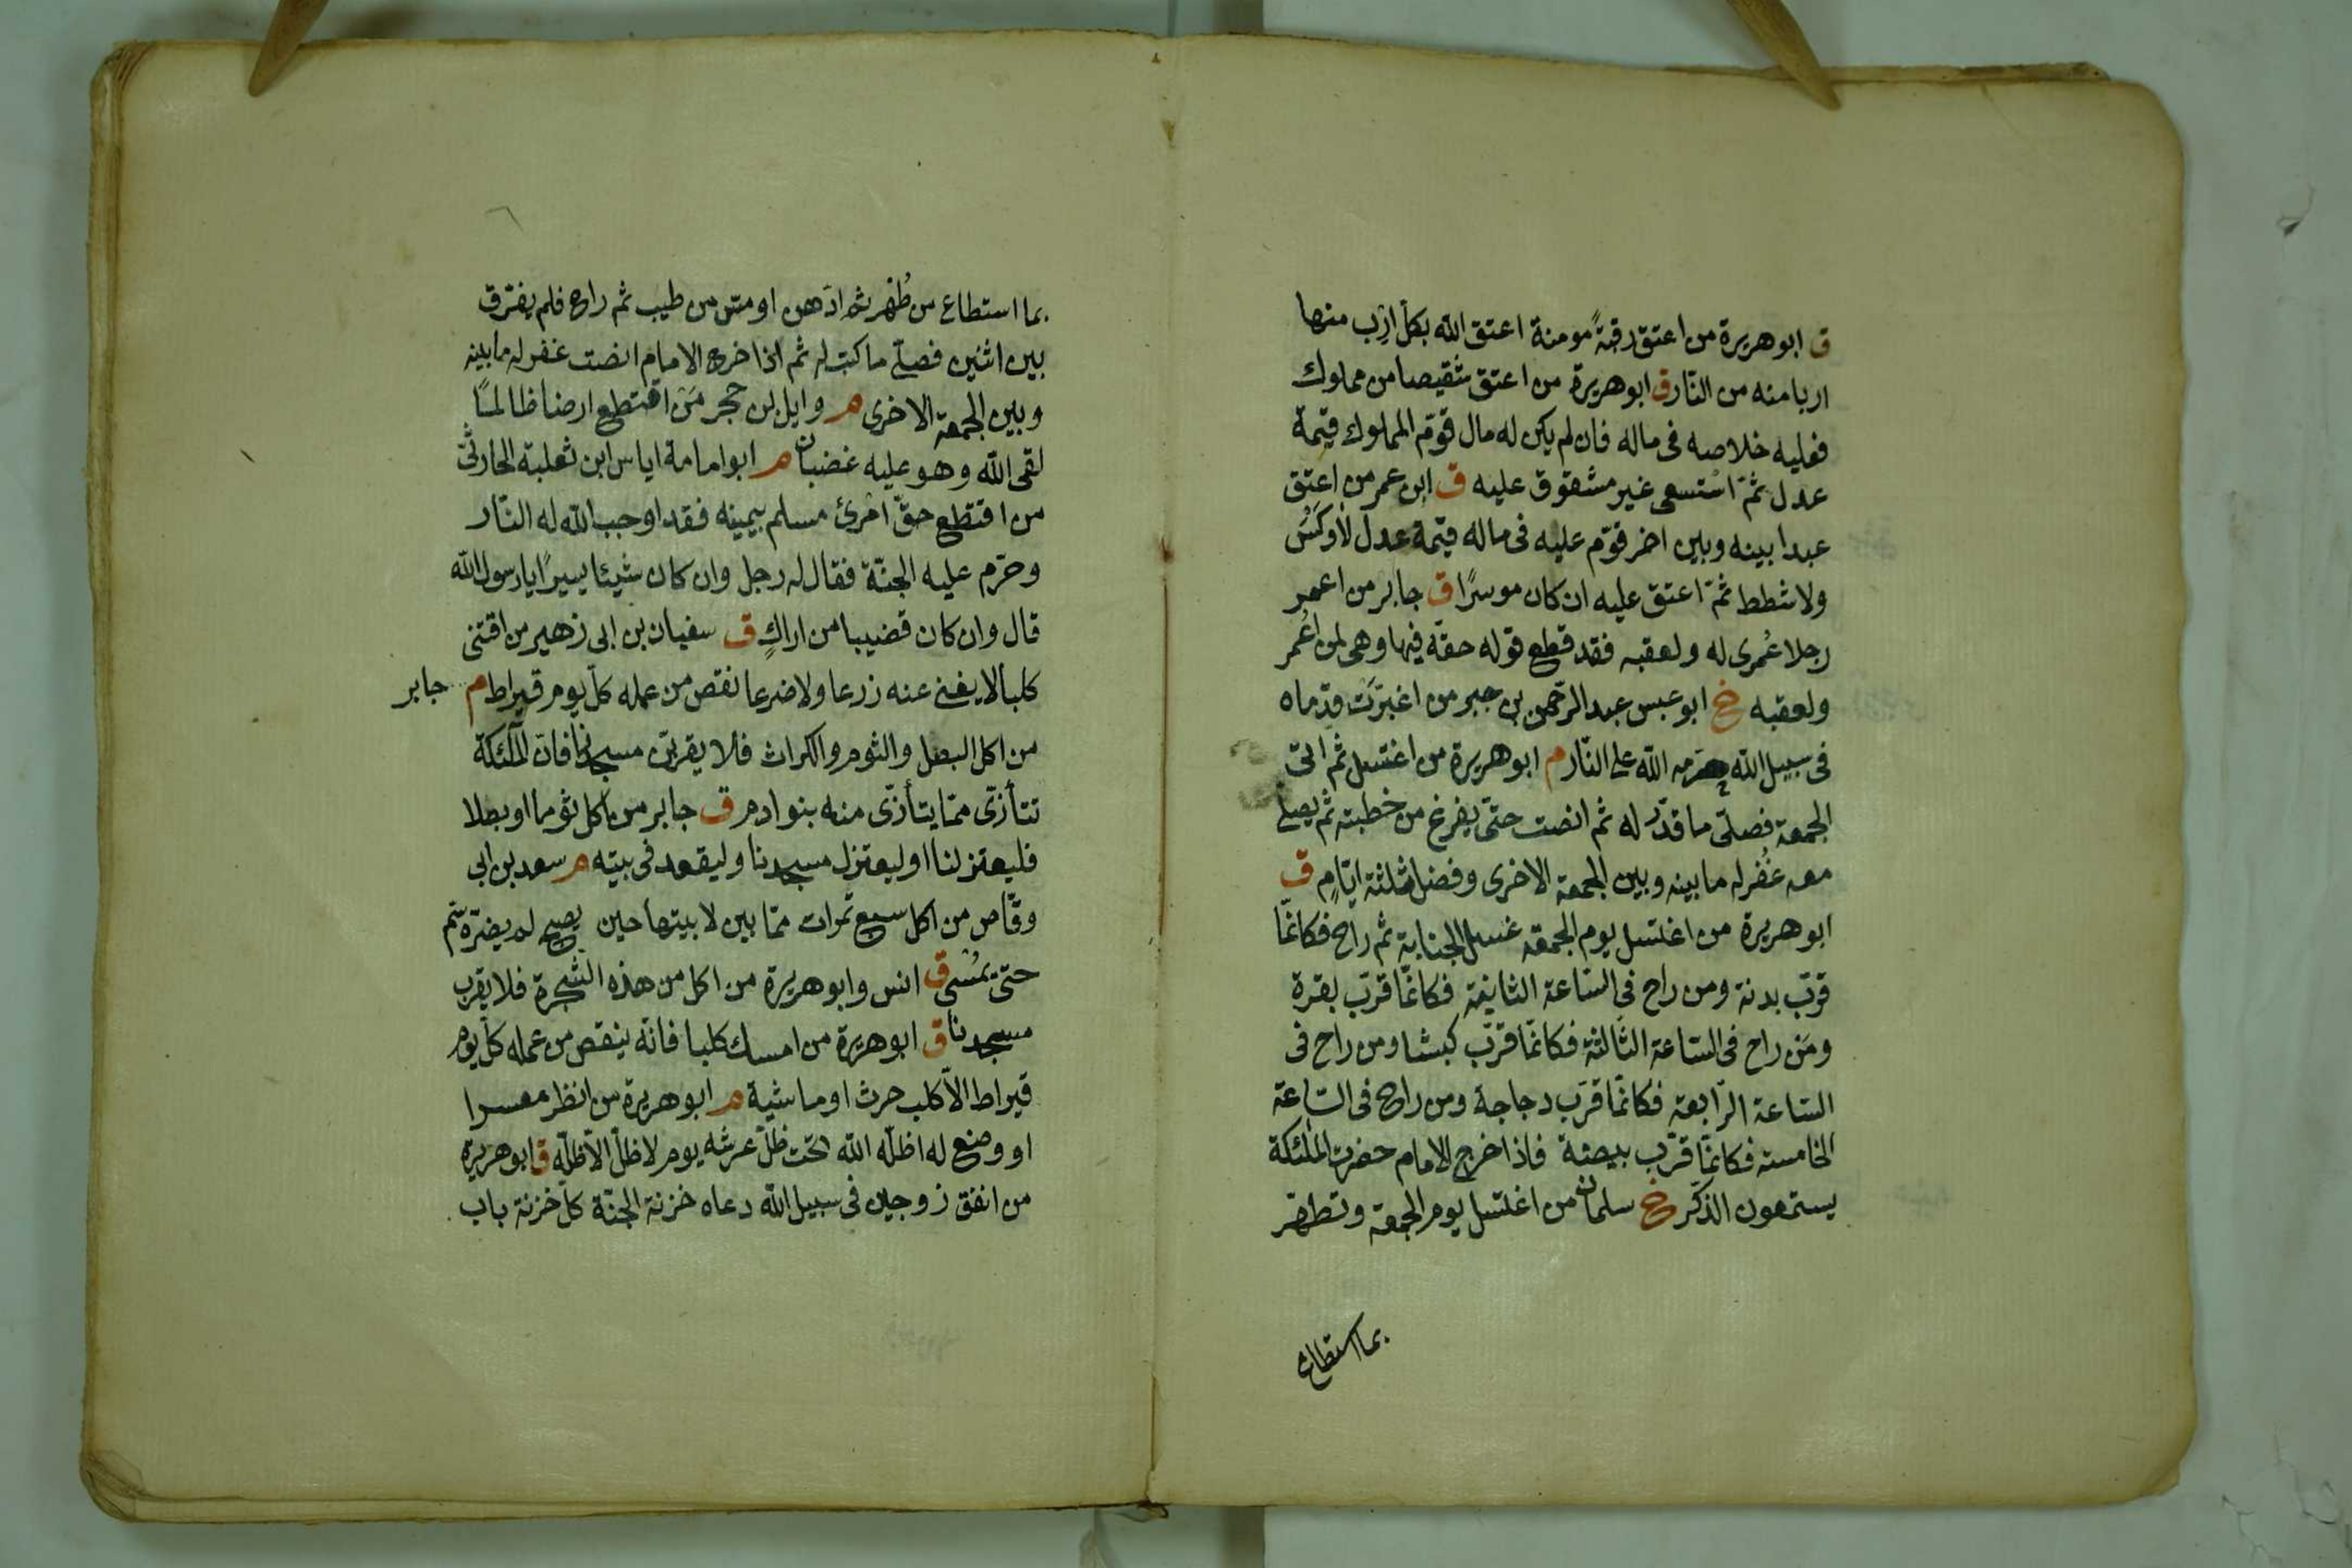 ق ابو هريرة من اعتق رقبةً مومنة اعتق الله بكل ارب منها
اربا منه من النّار ق ابو هريرة من اعتق شقيصا من مملوك
فعليه خلاصه فى ماله فان لم يكن له مال قوّم المملوك قيمة
عدل ثمّ استسعى غير مشقوق عليه ق ابن عمر من اعتق
عبدا بينه وبين اخر قوّم عليه فى ماله قيمة عدل لا وكس
ولا شطط ثمّ اعتق عليه ان كان موسرًا ق جابر من اعمر
رجلا عُمرى له ولعقبه فقد قطع قوله حقّه فيها وهى لمن اعُمر
ولعقبه خ ابو عبس عبد الرّحمن بن جبر من اغبرّت قدماه
فى سبيل الله حرّمه الله على النّار م ابو هريرة من اغتسل ثم اتى
الجمعة فصلّى ما قدّر له ثم انصت حتّى يفرغ من خطبته ثم يصلى
معه غُفر له ما بينه وبين الجمعة الاخرى وفضل ثلثة ايّامٍ ق
ابو هريرة من اغتسل يوم الجمعة غسل الجنابة ثم راح فكانّما
قرّب بدنة ومن راح فى السّاعة الثانية فكانّما قرّب بقرة
ومَن راح فى السّاعة الثّالثة فكانّما قرّب كبشا ومن راح فى
السّاعة الرّابعة فكانّما قرّب دجاجة ومن راح فى السّاعة
الخامسة فكانّما قرّب بيضة فاذا خرج الامام حضرت الملئكة
يستمعون الذكر خ سلمان من اغتسل يوم الجمعة وتطهّر
بما استطاع
بما استطاع من طُهر ثم ادّهن او مسّ من طيب ثم راح فلم يفترق
بين اثنين فصلّى ما كتب له ثم اذا خرج الامام انصت غفر له ما بينه
وبين الجمعة الاخرى م وايل بن حجر مَن اقتطع ارضا ظالمًا
لقى الله وهو عليه غضبان م ابو امامة اياس ابن ثعلبة الحارثّى
من اقتطع حقّ امرئ مسلم بيمينه فقد اوجب الله له النّار
وحرّم عليه الجنّة فقال له رجل وان كان شيئا يسيرًا يا رسول الله
قال وان كان قضيبا من اراكٍ ق سفيان بن ابى زهير من اقتنى
كلبا لا يغنى عنه زرعا ولا ضرعا نقص من عمله كلّ يوم قيراط م جابر
من اكل البصل والثوم والكراث فلا يقربنّ مسجدنا فان الملٓئكة
تتأذّى ممّا يتأذّى منه بنو ادم ق جابر من اكل ثوما او بصلا
فليعتزلنا او ليعتزل مسجدنا وليقعد فى بيته م سعد بن ابى
وقّاص من اكل سبع تمرات ممّا بين لابيتها حين يصبح لم يضرّه سّم
حتّى يمُسى ق انس وابو هريرة من اكل من هذه الشّجرة فلا يقرب
مسجدنا ق ابو هريرة من امسك كلبا فانّه ينقص من عمله كلّ يوم
قيراط الّا كلب حرث او ماشية م ابو هريرة من انظر معسرا
او وضع له اظلّه الله تحت ظلّ عرشه يوم لا ظلّ الّا ظلّه ق ابو هريرة
من انفق زوجين فى سبيل الله دعاه خزنة الجنّة كلّ خزنة باب